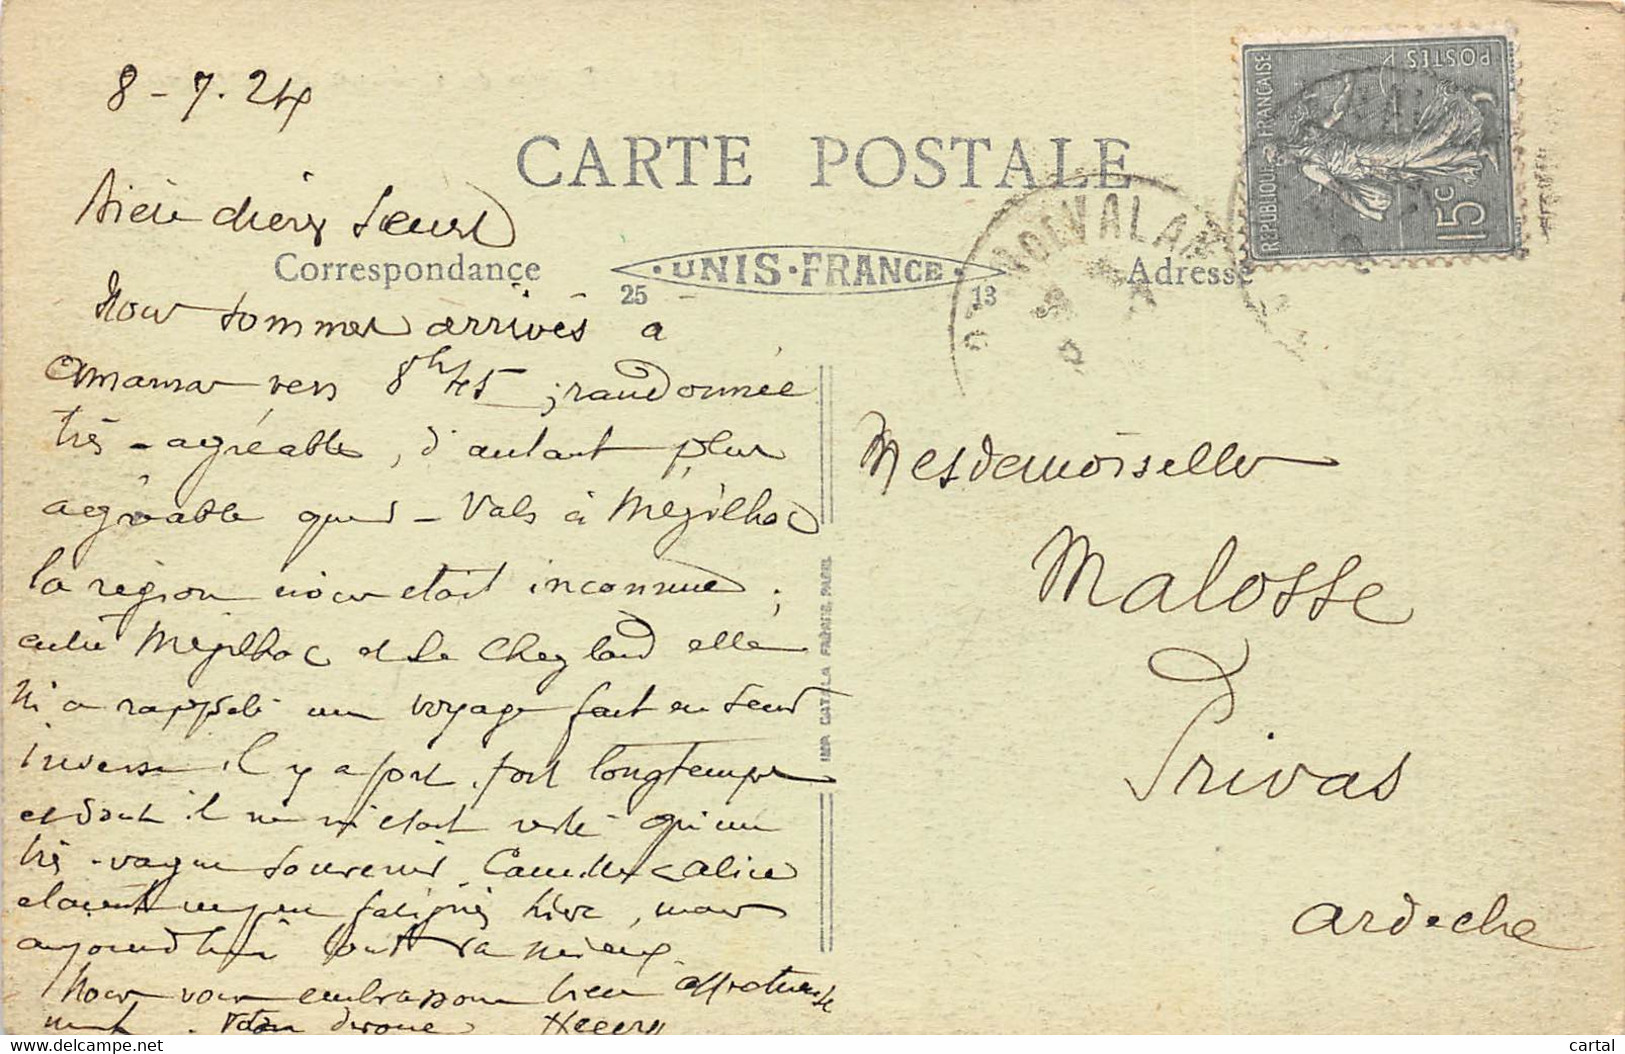 8-7.24
CARTE POSTALE
REPUBLIQUE FRANÇAISE
POSTES
15c
chères Sœurs
Correspondance
UNIS-FRANCE
25
13
Adresse
Nous sommes arrivés à
Amarnas vers 8h45 ; randonnée
très-agréable, d'autant plus
agréable que de Vals à Mézilhac
la région nous était inconnue ;
entre Mézilhac et Le Cheylard elle
m'a rappelé un voyage fait en sens
inverse il y a fort, fort longtemps
et dont il ne m'était resté qu'un
très-vague souvenir. Camille & Alice
étaient un peu fatigués hier, mais
aujourd'hui tout va mieux.
Nous vous embrassons bien affectueuse
ment. Votre
IMP. CATALA FRERES, PARIS
Mesdemoiselles
Malosse
Privas
Ardèche
cartal
https://www.delcampe.net